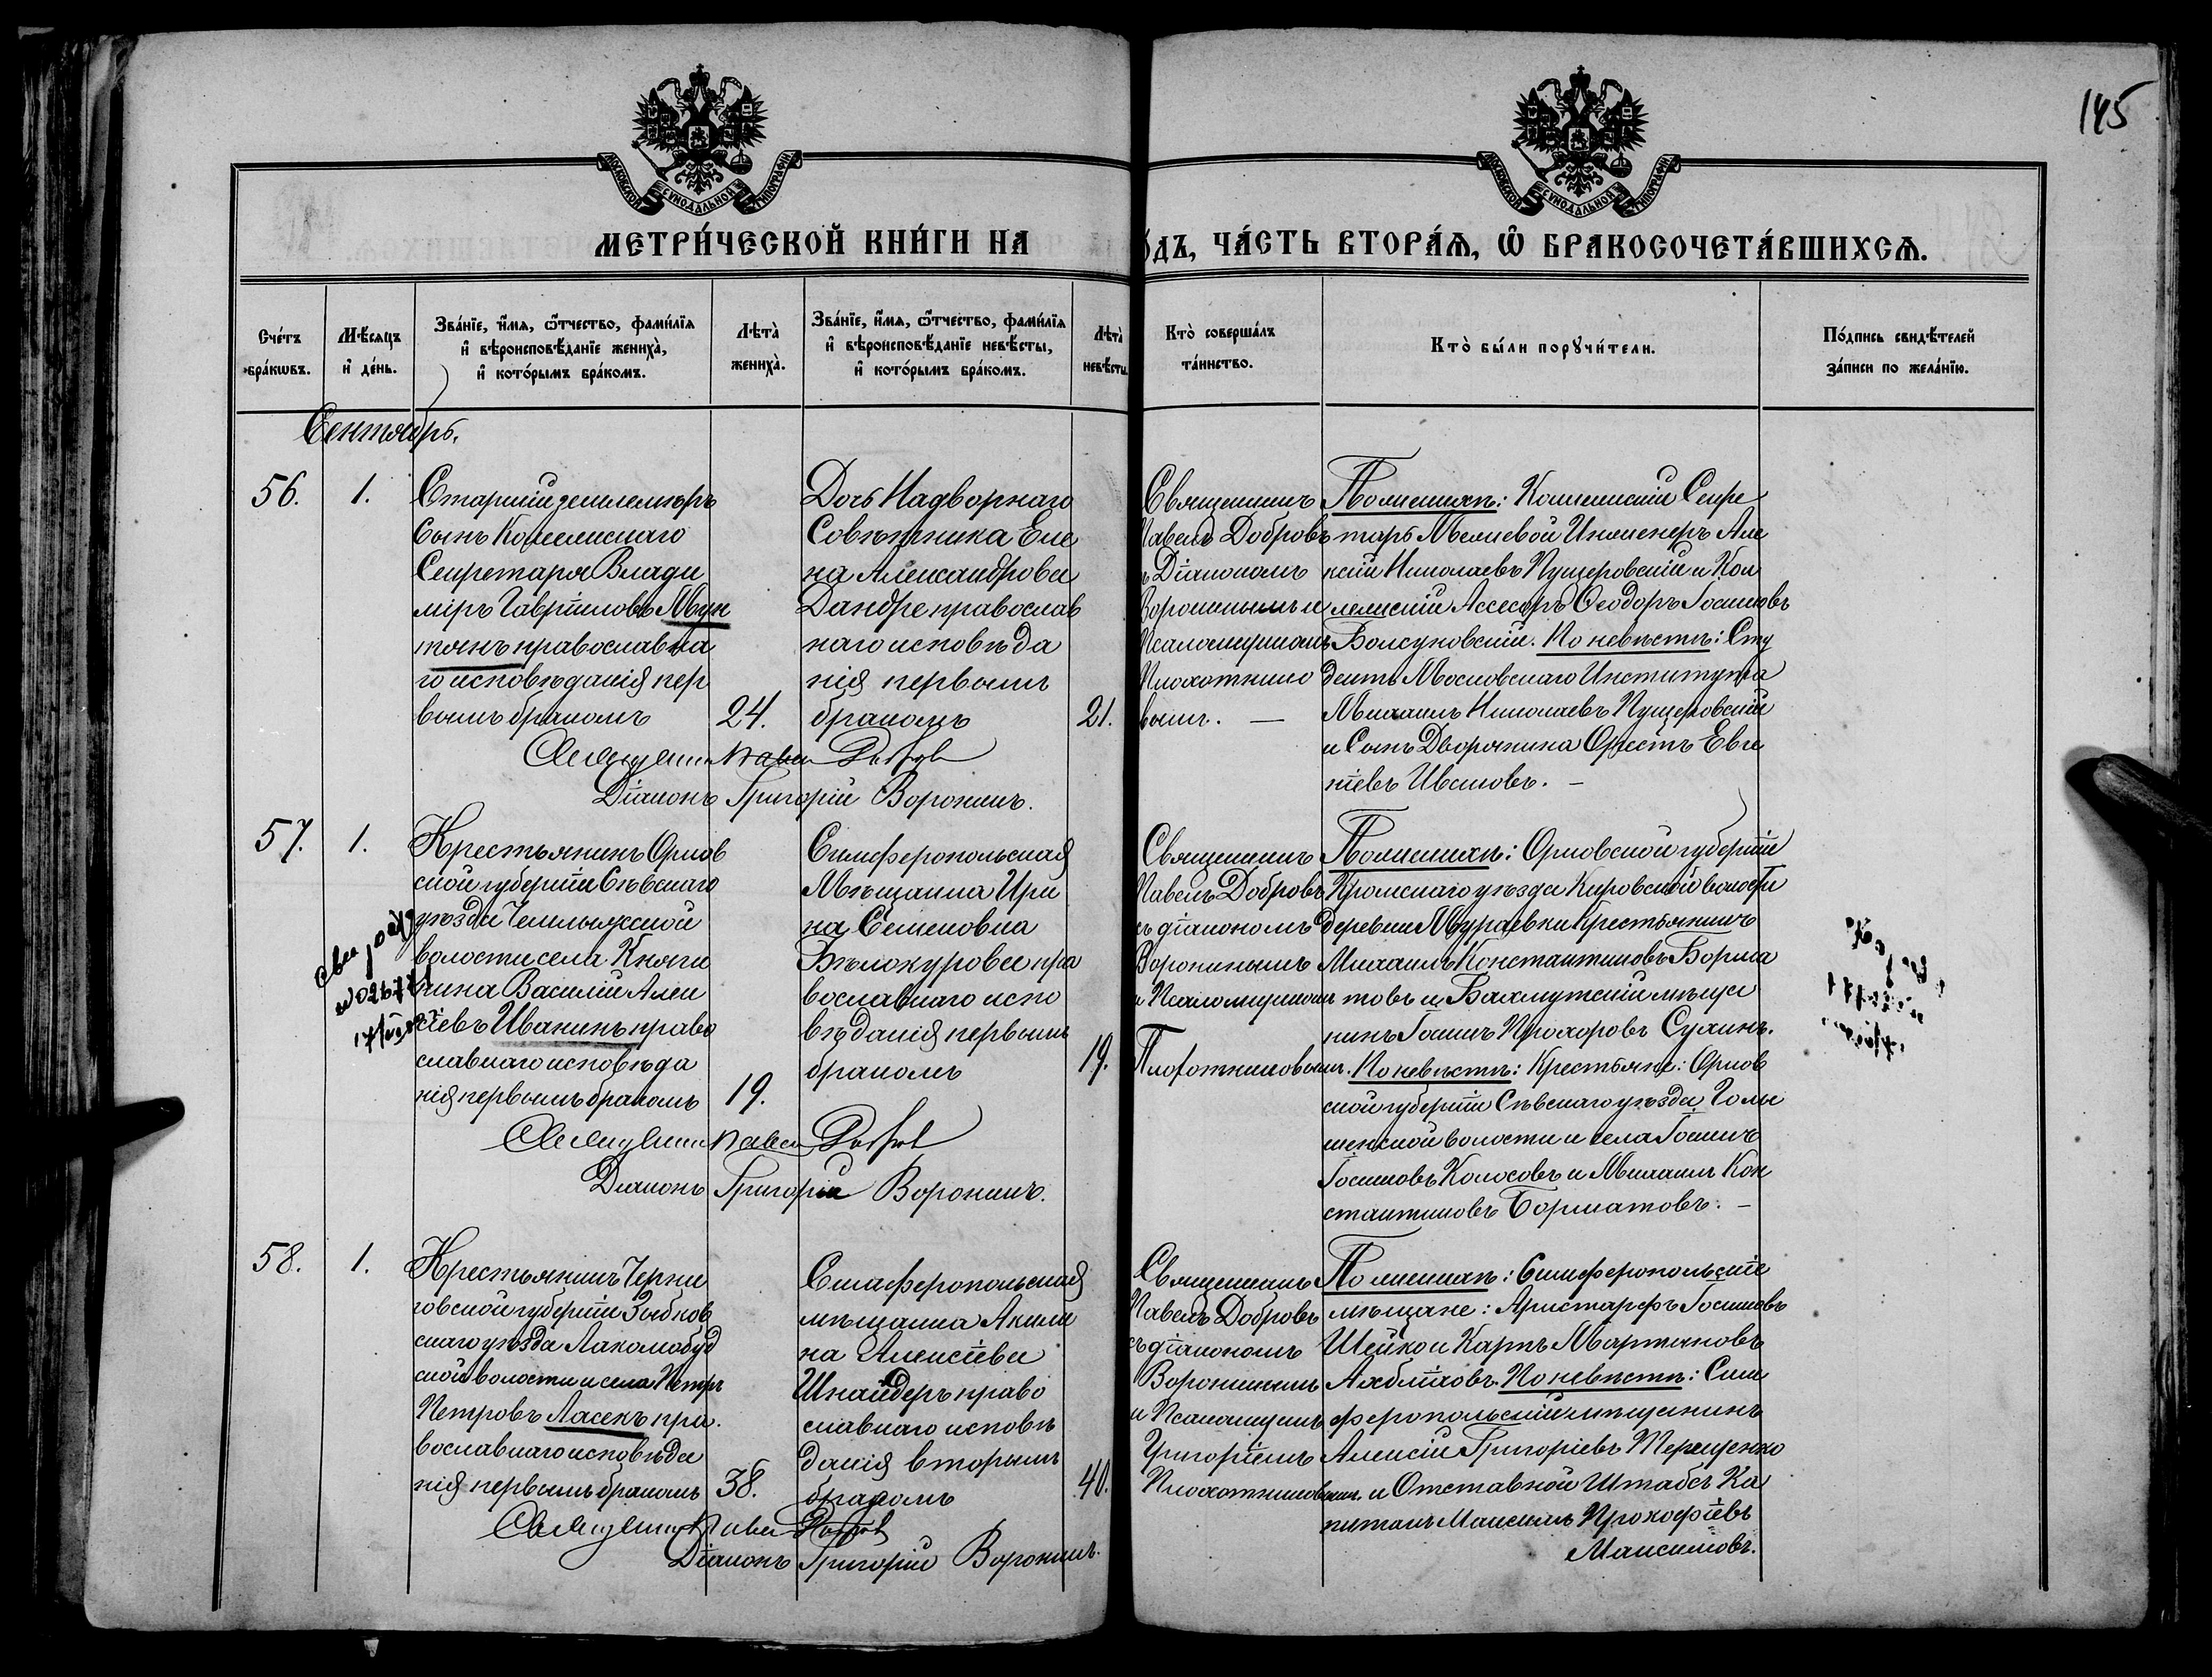 145
МОСКОВСКОЙ СѴНОДАЛЬНОЙ ТИПОГРАФІИ
МОСКОВСКОЙ СѴНОДАЛЬНОЙ ТИПОГРАФІИ
МЕТРИ́ЧЕСКОЙ КНИ́ГИ НА
ѠДЪ, ЧА́СТЬ ВТОРА́Ѧ, Ѡ҆ БРАКОСОЧЕТА́ВШИХСѦ.
Сче́тъ
бра́кѡвъ.
Мѣ́сяцъ
и҆ де́нь.
Зва́нїе, и҆́мѧ, ѻ҆́тчество, фами́лїѧ
и҆ вѣроисповѣ́данїе жениха̀,
и҆ кото́рымъ бра́комъ.
Лѣта̀
жениха̀.
Зва́нїе, и҆́мѧ, ѻ҆́тчество, фами́лїѧ
и҆ вѣроисповѣ́данїе невѣ́сты,
и҆ кото́рымъ бра́комъ.
Лѣта̀
невѣ́сты.
Кто̀ соверша́лъ
та́инство.
Кто̀ бы́ли порꙋчи́тели.
По́дпись свидѣ́телей
за́писи по жела́нїю.
Сентябрь.
56.
1.
Старшій землемѣръ
Сынъ Коллежскаго
Секретаря Влади
міръ Гавріиловъ Мун
тянъ православна
го исповѣданія пер
вымъ бракомъ
24.
Дочь Надворнаго
Совѣтника Еле
на Александрова
Дандре православ
наго исповѣда
нія первымъ
бракомъ
21.
Священникъ
Павелъ Добровъ
съ Діакономъ
Воронинымъ и
Псаломщикомъ
Плохотнико
вымъ. —
По женихѣ: Коллежскій Секре
тарь Межевой Инженеръ Але
ксій Николаевъ Пущеровскій и Кол
лежскій Ассесоръ Ѳеодоръ Іосифовъ
Болсуновскій. По невѣстѣ: Сту
дентъ Московскаго Института
Михаилъ Николаевъ Пущеровскій
и Сынъ Дворянина Орестъ Евге
ніевъ Ивановъ. —
Священникъ Павелъ Добровъ
Діаконъ Григорій Воронинъ.
57.
1.
Крестьянинъ Орлов
ской губерніи Сѣвскаго
уѣзда Чемлыжской
волости села Княги
нина Василій Алек
сіевъ Иванинъ право
славнаго исповѣда
нія первымъ бракомъ
19.
Симферопольская
Мѣщанка Ири
на Семенова
Бѣлокурова пра
вославнаго испо
вѣданія первымъ
бракомъ
19.
Священникъ
Павелъ Добровъ
съ діакономъ
Воронинымъ
и Псаломщикомъ
Плохотниковымъ.
По женихѣ: Орловской губерніи
Кромскаго уѣзда Кировской волости
деревни Мураевки Крестьянинъ
Михаилъ Константиновъ Борма
товъ и Бахмутскій мѣща
нинъ Іоаннъ Прохоровъ Сухинъ.
По невѣстѣ: Крестьяне: Орлов
ской губерніи Сѣвскаго уѣзда
волости и села Іоаннъ
Іоанновъ Колосовъ и Михаилъ Кон
стантиновъ Борматовъ. —
Священникъ Павелъ Добровъ
Діаконъ Григорій Воронинъ.
58.
1.
Крестьянинъ Черни
говской губерніи Зыбков
скаго уѣзда Лакомобуд
ской волости и села Петръ
Петровъ Ласекъ пра.
вославнаго исповѣда
нія первымъ бракомъ
38.
Симферопольская
мѣщанка Акили
на Алексіева
Шнайдеръ право
славнаго исповѣ
данія вторымъ
бракомъ
40.
Священникъ
Павелъ Добровъ
съ діакономъ
Воронинымъ
и Псаломщикомъ
Григоріемъ
Плохотниковымъ.
По женихѣ: Симферопольскіе
мѣщане: Аристархъ Іосифовъ
Шейко и Карпъ Мартиновъ
По невѣстѣ: Сим
феропольскій мѣщанинъ
Алексій Григоріевъ Терещенко
и Отставной Штабсъ Ка
питанъ Максимъ Прокофіевъ
Максимовъ.
Священникъ Павелъ Добровъ
Діаконъ Григорій Воронинъ.